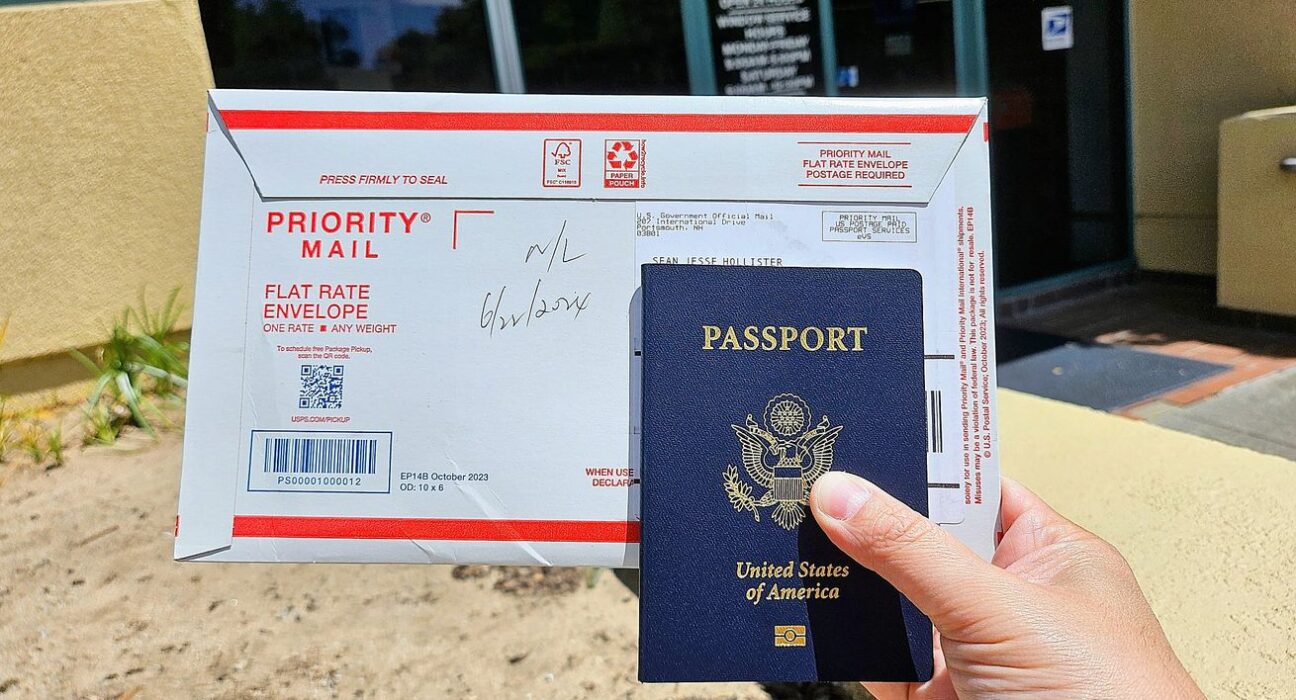 WINDOW SERVICE
HOURS
MONDAY-FRIDAY
SATURDAY
PRESS FIRMLY TO SEAL
FSC
MIX
PAPER
POUCH
how2recycle.info
PRIORITY MAIL
FLAT RATE ENVELOPE
POSTAGE REQUIRED
PRIORITY®
MAIL
FLAT RATE
ENVELOPE
ONE RATE ■ ANY WEIGHT
To schedule free Package Pickup,
scan the QR code.
USPS.COM/PICKUP
PS00001000012
EP14B October 2023
OD: 10 x 6
N/L
6/21/2024
U.S. Government Official Mail
207 International Drive
Portsmouth, NH
03801
PRIORITY MAIL
US POSTAGE PAID
PASSPORT SERVICES
eVS
SEAN JESSE HOLLISTER
WHEN USE
DECLARA
solely for use in sending Priority Mail® and Priority Mail International® shipments.
Misuses may be a violation of federal law. This package is not for resale. EP14B
© U.S. Postal Service; October 2023; All rights reserved.
PASSPORT
United States
of America